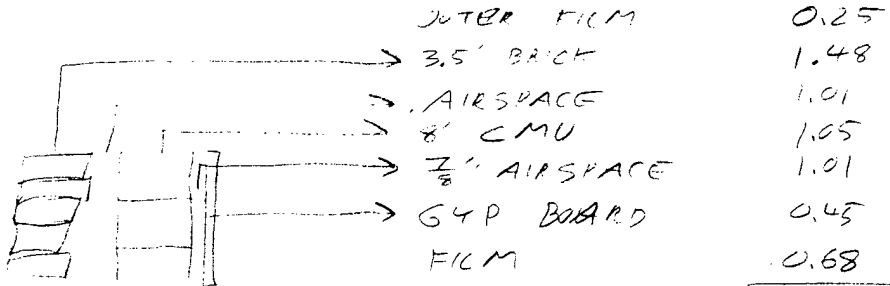 OUTER FILM 0.25
3.5" BRICK 1.48
AIRSPACE 1.01
8" CMU 1.05
7/8" AIRSPACE 1.01
GYP BOARD 0.45
FILM 0.68